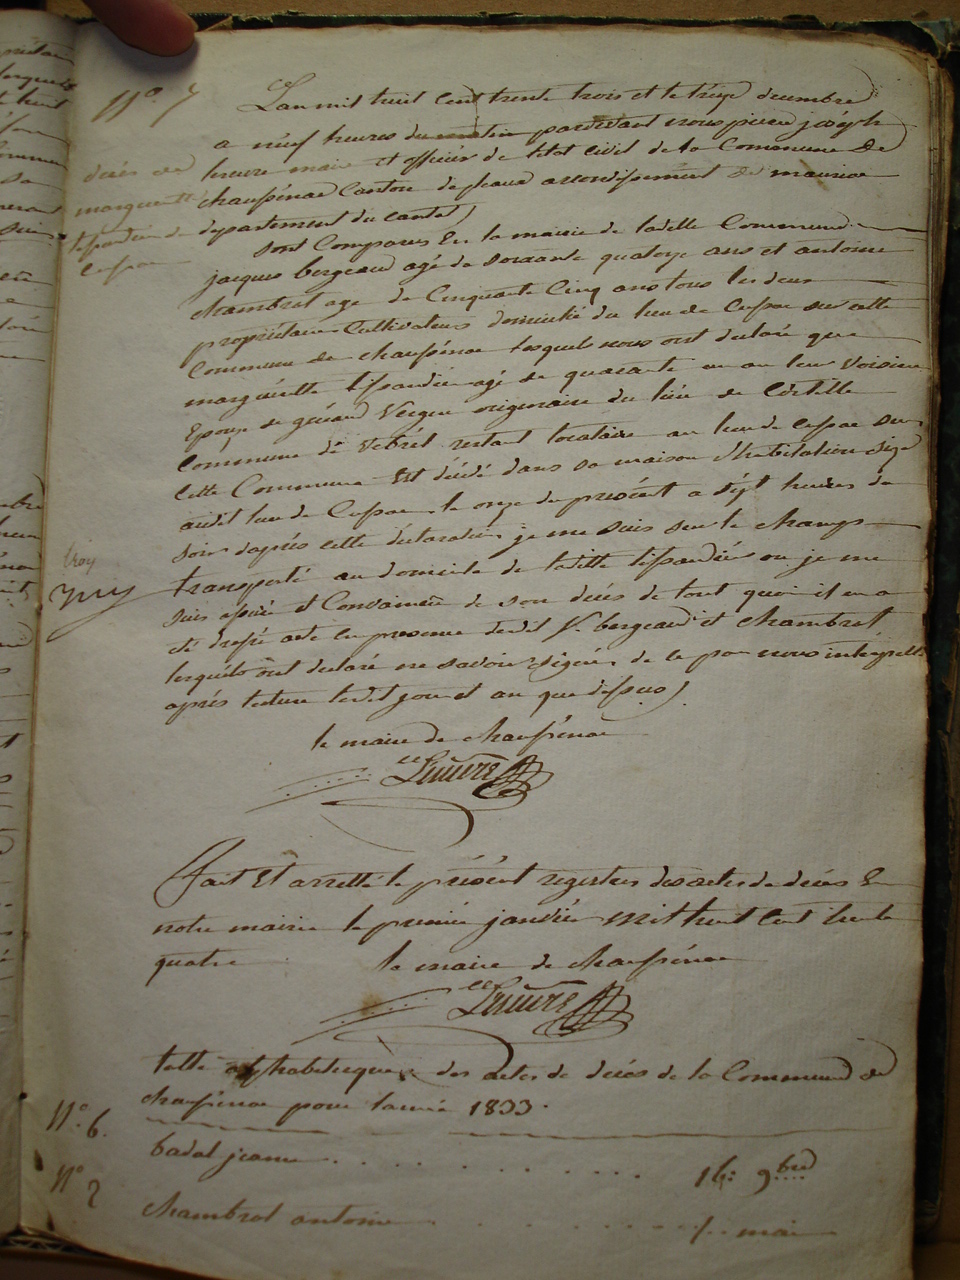 N° 7
décès de
margueritte
tissandier de
Cussac
L'an mil huit cent trente trois et le treize decembre
a neuf heures du matin pardevant nous pierre joseph
lescure maire et officier de l'etat civil de la Commune de
chaussenac Canton de pleaux arrondissement de mauriac
departement du cantal
Sont Comparus En la mairie de ladite Commune
jacques bergeaud agé de soixante quatorze ans et antoine
chambrot age de Cinquante Cinq ans tous les deux
propriétaires Cultivateurs domicilié du lieu de Cussac sur cette
Commune de chaussenac lesquels nous ont declaré que
marguéritte tissandier agé de quarante un an leur voisine
Epouse de gérard Vergne originaire du lieu de
Commune de Vebrét restant locataire au lieu de Cussac sur
Cette Commune Est décédé dans sa maison d'habitation size
audit lieu de Cussac le onze du présent a sépt heures du
soir daprés cette déclaration je me suis sur le champs
transporté au domicile de ladite tissandier ou je me
suis assuré et Convaincu de son décès de tout quoi il en a
été dressé acte en presence desdit Sr bergeaud et chambrot
lesquéls ont declaré ne savoir signér de ce par nous intérpellé
aprés lecture ledit jour et an que dessus
le maire de chaussenac
Lescure
Fait Et arretté le présent registre des actes de décès En
notre mairie le premier janvier mil huit Cent trente
quatre le maire de chaussenac
Lescure
table alphabetique des actes de décés de la Commune de
chaussenac pour l'année 1833.
N° 6. badal jeanne . . . . . . . . . . 16: 9bre
N° 2 chambrot antoine . . . . . . . mai